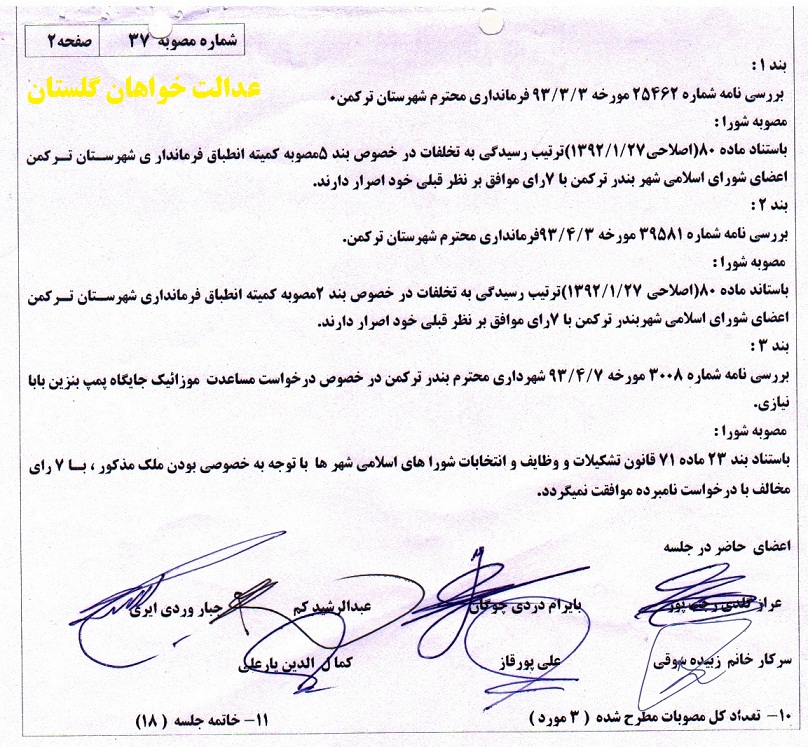 شماره مصوبه ۳۷ صفحه۲
عدالت خواهان گلستان
بند ۱ :
بررسی نامه شماره ۲۵۴۶۲ مورخه ۹۳/۳/۳ فرمانداری محترم شهرستان ترکمن۰
مصوبه شورا :
باستناد ماده ۸۰(اصلاحی۱۳۹۲/۱/۲۷)ترتیب رسیدگی به تخلفات در خصوص بند ۵مصوبه کمیته انطباق فرماندار ی شهرستان ترکمن
اعضای شورای اسلامی شهر بندر ترکمن با ۷رای موافق بر نظر قبلی خود اصرار دارند.
بند ۲ :
بررسی نامه شماره ۳۹۵۸۱ مورخه ۹۳/۴/۳فرمانداری محترم شهرستان ترکمن.
مصوبه شورا :
باستاند ماده ۸۰(اصلاحی ۱۳۹۲/۱/۲۷)ترتیب رسیدگی به تخلفات در خصوص بند ۲مصوبه کمیته انطباق فرمانداری شهرستان ترکمن
اعضای شورای اسلامی شهربندر ترکمن با ۷رای موافق بر نظر قبلی خود اصرار دارند.
بند ۳ :
بررسی نامه شماره ۳۰۰۸ مورخه ۹۳/۴/۷ شهرداری محترم بندر ترکمن در خصوص درخواست مساعدت موزائیک جایگاه پمپ بنزین بابا
نیازی.
مصوبه شورا :
باستناد بند ۲۳ ماده ۷۱ قانون تشکیلات و وظایف و انتخابات شورا های اسلامی شهر ها با توجه به خصوصی بودن ملک مذکور ، با ۷ رای
مخالف با درخواست نامبرده موافقت نمیگردد.
اعضای حاضر در جلسه
عراز گلدی رجب پور بایرام دردی چوگان عبدالرشید کم جبار وردی ایری
سرکار خانم زبیده علی پورقاز کمال الدین یارعلی
۱۰- تعداد کل مصوبات مطرح شده ( ۳ مورد ) ۱۱- خاتمه جلسه ( ۱۸ )